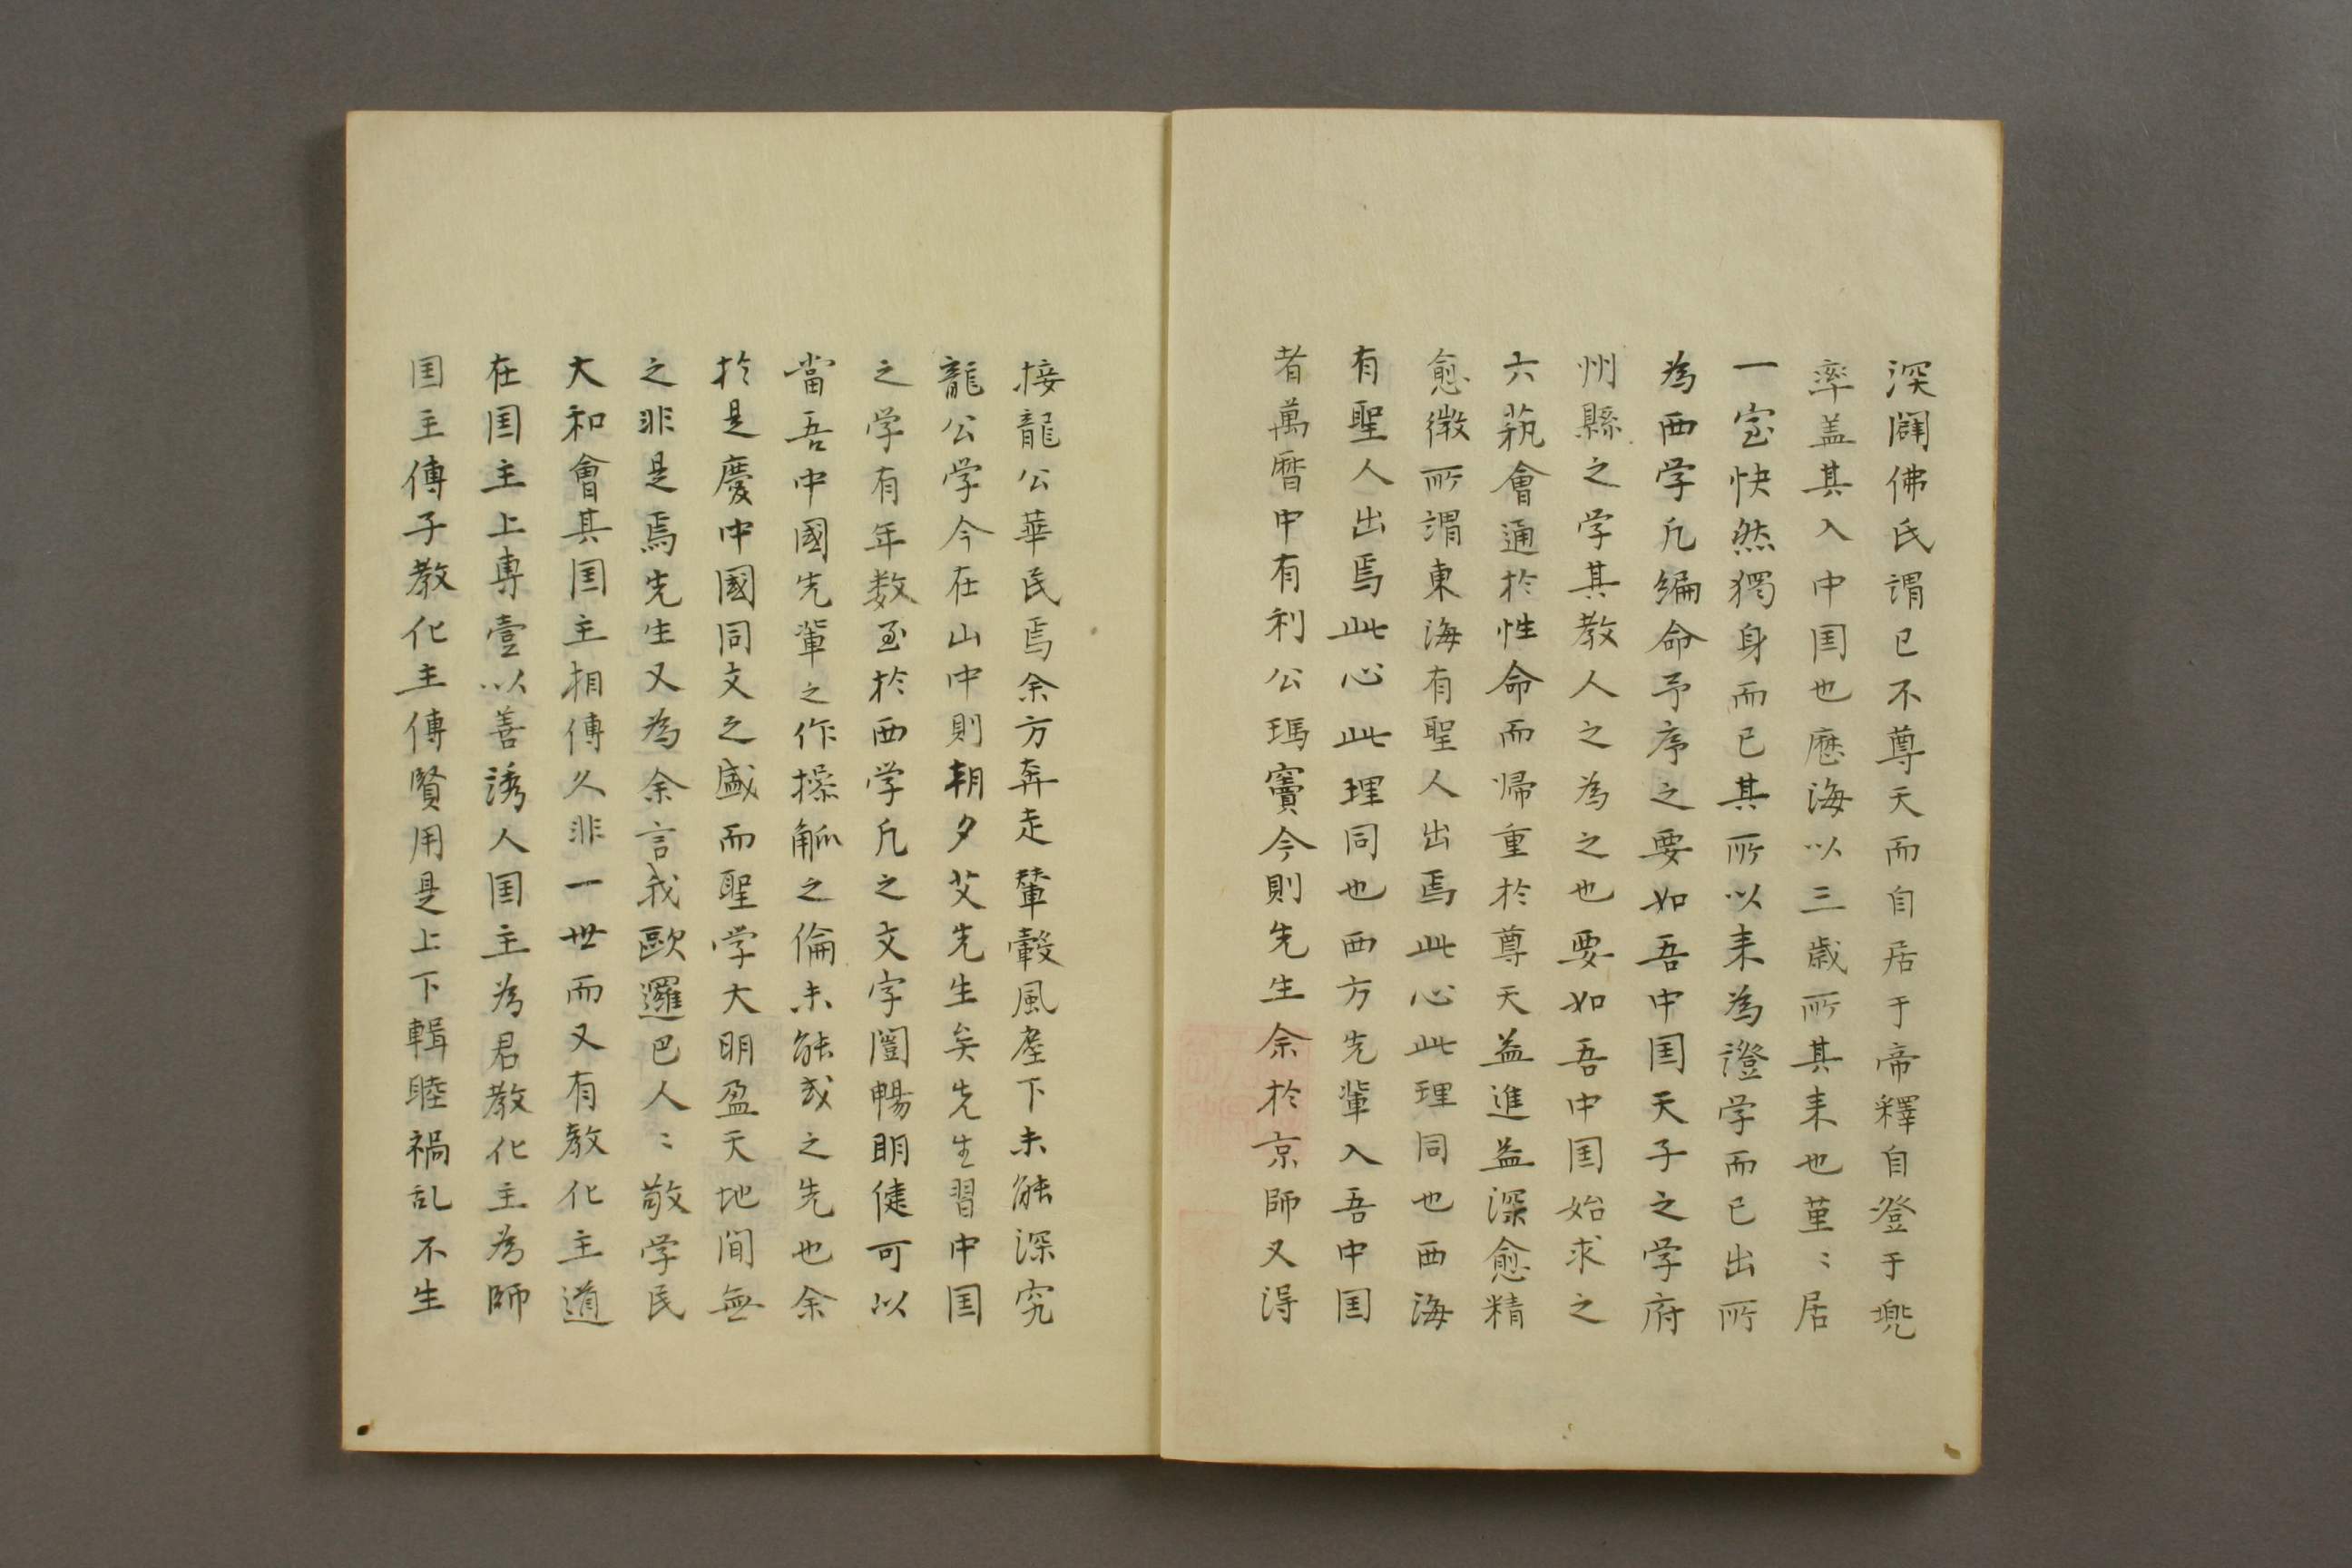 深闢佛氏謂已不尊天而自居于帝釋自澄于兠
率盖其入中囯也歴海以三歳所其来也堇〻居
一室快然獨身而已其所以来為證学而已出所
為西学凡編命予序之要如吾中囯天子之学府
州縣之学其教人之為之也要如吾中囯始求之
六蓺會通於性命而帰重於尊天益進益深愈精
愈徴所謂東海有聖人出焉此心此理同也西海
有聖人出焉此心此理同也西方先輩入吾中囯
者萬暦中有利公瑪竇今則先生余於京師又淂
接龍公華民焉余方奔走輦轂風塵下未能深究
龍公学今在山中則朝夕艾先生矣先生習中囯
之学有年数至於西学凡之文字闓暢眀健可以
當吾中國先輩之作操觚之倫未能或之先也余
於是慶中國同文之盛而聖学大明盈天地間無
之非是焉先生又為余言我歐邏巴人〻敬学民
大和會其囯主相傳久非一世而又有教化主道
在囯主上専壹以善誘人囯主為君教化主為師
囯主傳子教化主傳賢用是上下輯睦禍乱不生